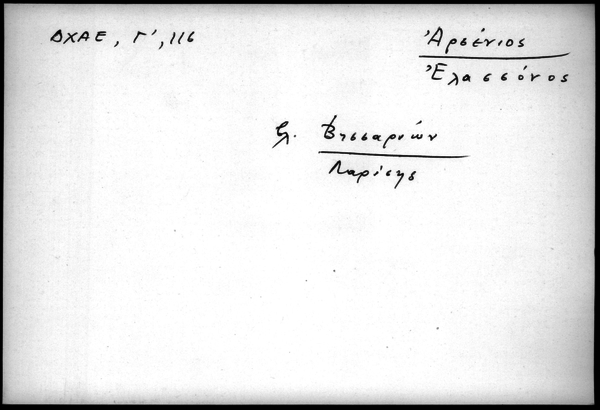 ΔΧΑΕ, Γ', 116
Ἀρσένιος
Ἐλασσόνος
βλ. Βησσαριών
Λαρίσης